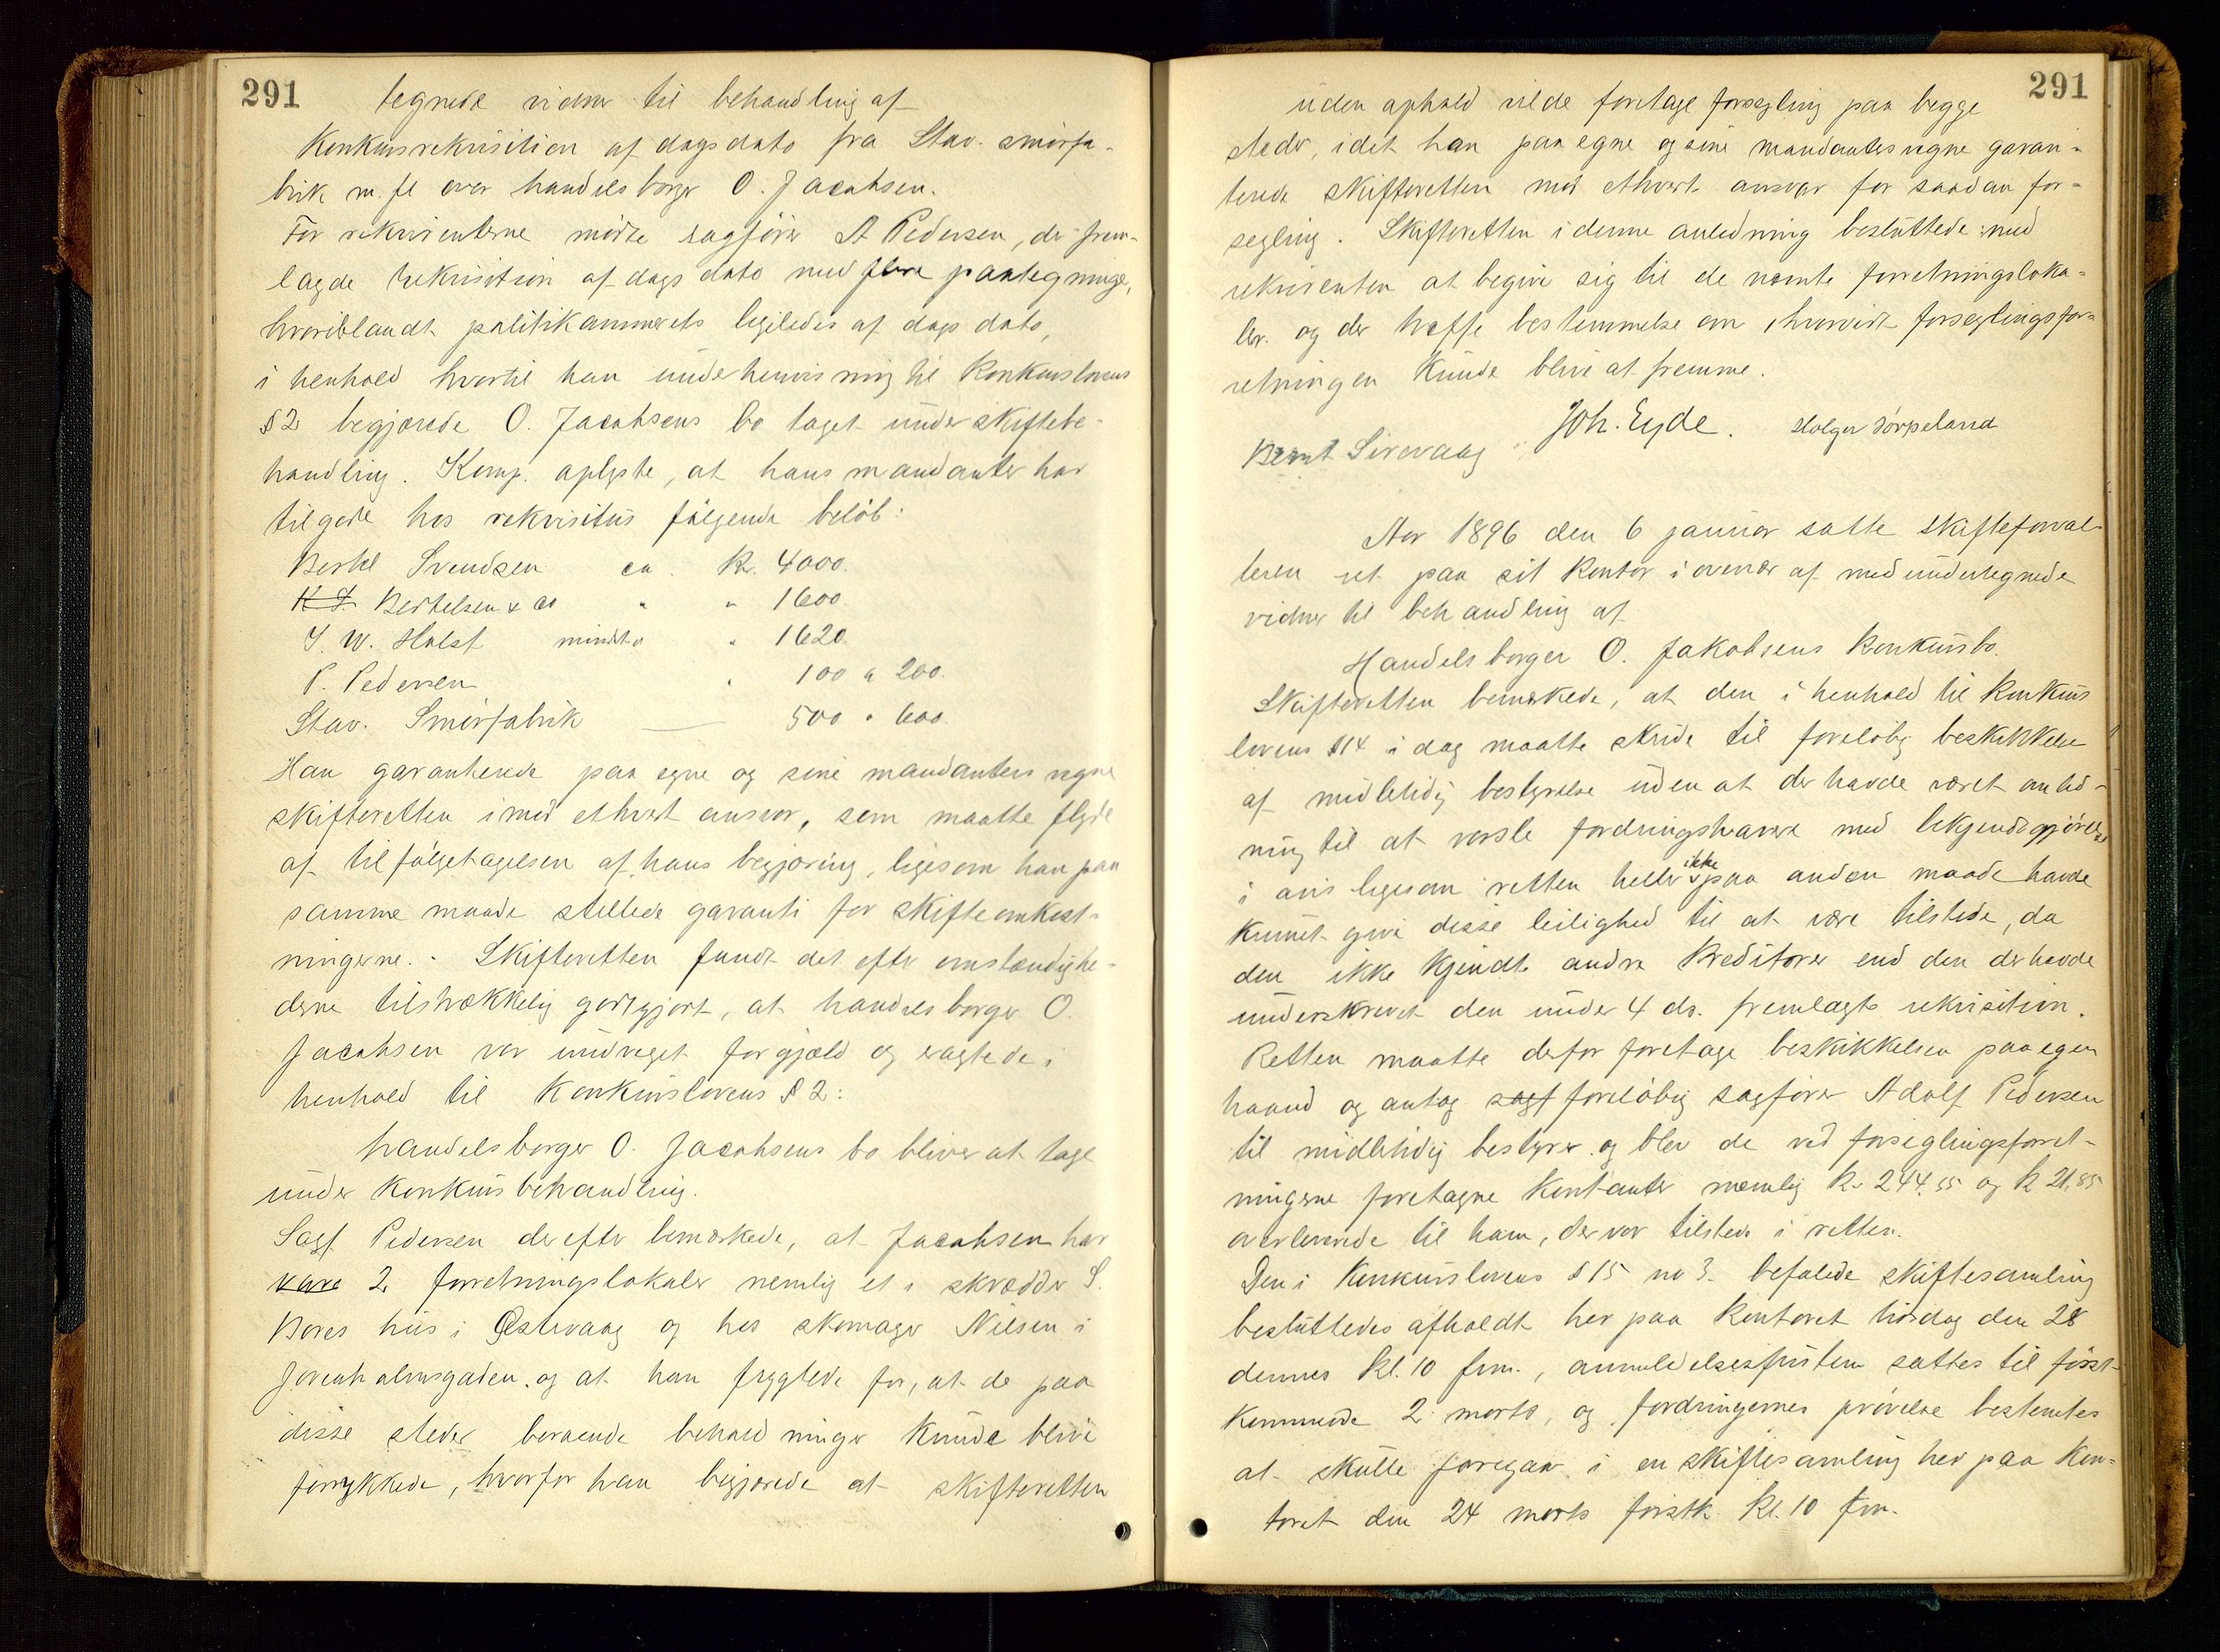 291
tegnede vidner til behandling af
Konkursrekvisition af dags dato fra Stav. smørfa-
brik m. fl over handelsborger O. Jacobsen.
For rekvirenterne mødte sagfører A Pedersen, der frem-
lagde rekvisition af dags dato med flere paategninger,
hvoriblandt politikammerets ligeledes af dags dato,
i henhold hvortil han under henvisning til Konkurslovens
§ 2 begjærede O. Jacobsens bo taget under skiftebe-
handling. Komp. oplyste, at hans mandanter har
tilgode hos rekvisitus følgende beløb:
Bertel Svendsen ca. Kr. 4000.
Bertelsen & Co " " 1600.
J. W. Holst mindst " 1620.
P. Pedersen " 100 a 200.
Stav. Smørfabrik — 500 " 600.
Han garanterede paa egne og sine mandanters vegne
skifteretten imod ethvert ansvar, som maatte flyde
af tilfølgetagelsen af hans begjæring, ligesom han paa
samme maade stillede garanti for skifteomkost-
ningerne. - Skifteretten fandt det efter omstændighe-
derne tilstrækkelig godtgjort, at handelsborger O.
Jacobsen var undveget for gjæld og eragtede i
henhold til Konkurslovens § 2:
Handelsborger O. Jacobsens bo bliver at tage
under Konkursbehandling.
Sagf. Pedersen derefter bemærkede, at Jacobsen har
vare 2 forretningslokaler nemlig et i skrædder S.
Bores hus i Østervaag og hos skomager Nilsen i
Jorenholmsgaden, og at han frygtede for, at de paa
disse steder beroende beholdninger kunde blive
forrykkede, hvorfor han begjærede at skifteretten
291
uden ophold vilde foretage forsegling paa begge
steder, idet han paa egne og sine mandanters vegne garan-
terede skifteretten mod ethvert ansvar for saadan for-
segling. Skifteretten i denne anledning besluttede med
rekvirenten at begive sig til de nævnte forretningsloka-
ler og der træffe bestemmelse om, hvorvidt forseglingsfor-
retningen kunde blive at fremme.
Joh. Eyde. Holger Jørpeland
Bernt Sirevaag
Aar 1896 den 6 januar satte skifteforval-
teren ret paa sit Kontor i overvær af medundertegnede
vidner til behandling af
Handelsborger O. Jakobsens Konkursbo.
Skifteretten bemærkede, at den i henhold til Konkurs
lovens § 14 i dag maatte skride til foreløbig beskikkelse
af midletidig bestyrelse uden at der havde været anled-
ning til at varsle fordringshavere med bekjendtgjørelse
i avis ligesom retten heller ikke paa anden maade havde
kunnet give disse leilighed til at være tilstede, da
den ikke kjendte andre Kreditorer end den der havde
underskrevet den under 4 ds. fremlagte rekvisition.
Retten maatte derfor foretage beskikkelsen paa egen
haand og antog sagf foreløbig sagfører Adolf Pedersen
til midletidig bestyrer og blev de ved forseglingsforret-
ningerne foretagne Kontanter nemlig Kr. 244.55 og Kr 21.85
overleverede til ham, der var tilstede i retten.
Den i Konkurslovens § 15 no 3. befalede skiftesamling
besluttedes afholdt her paa Kontoret tirsdag den 28
dennes Kl. 10 frm., anmeldelsesfristen sattes til først-
kommende 2 marts, og fordringernes prøvelse bestemtes
at skulle foregaa i en skiftesamling her paa Kon-
toret den 24 marts førstk. Kl. 10 frm.